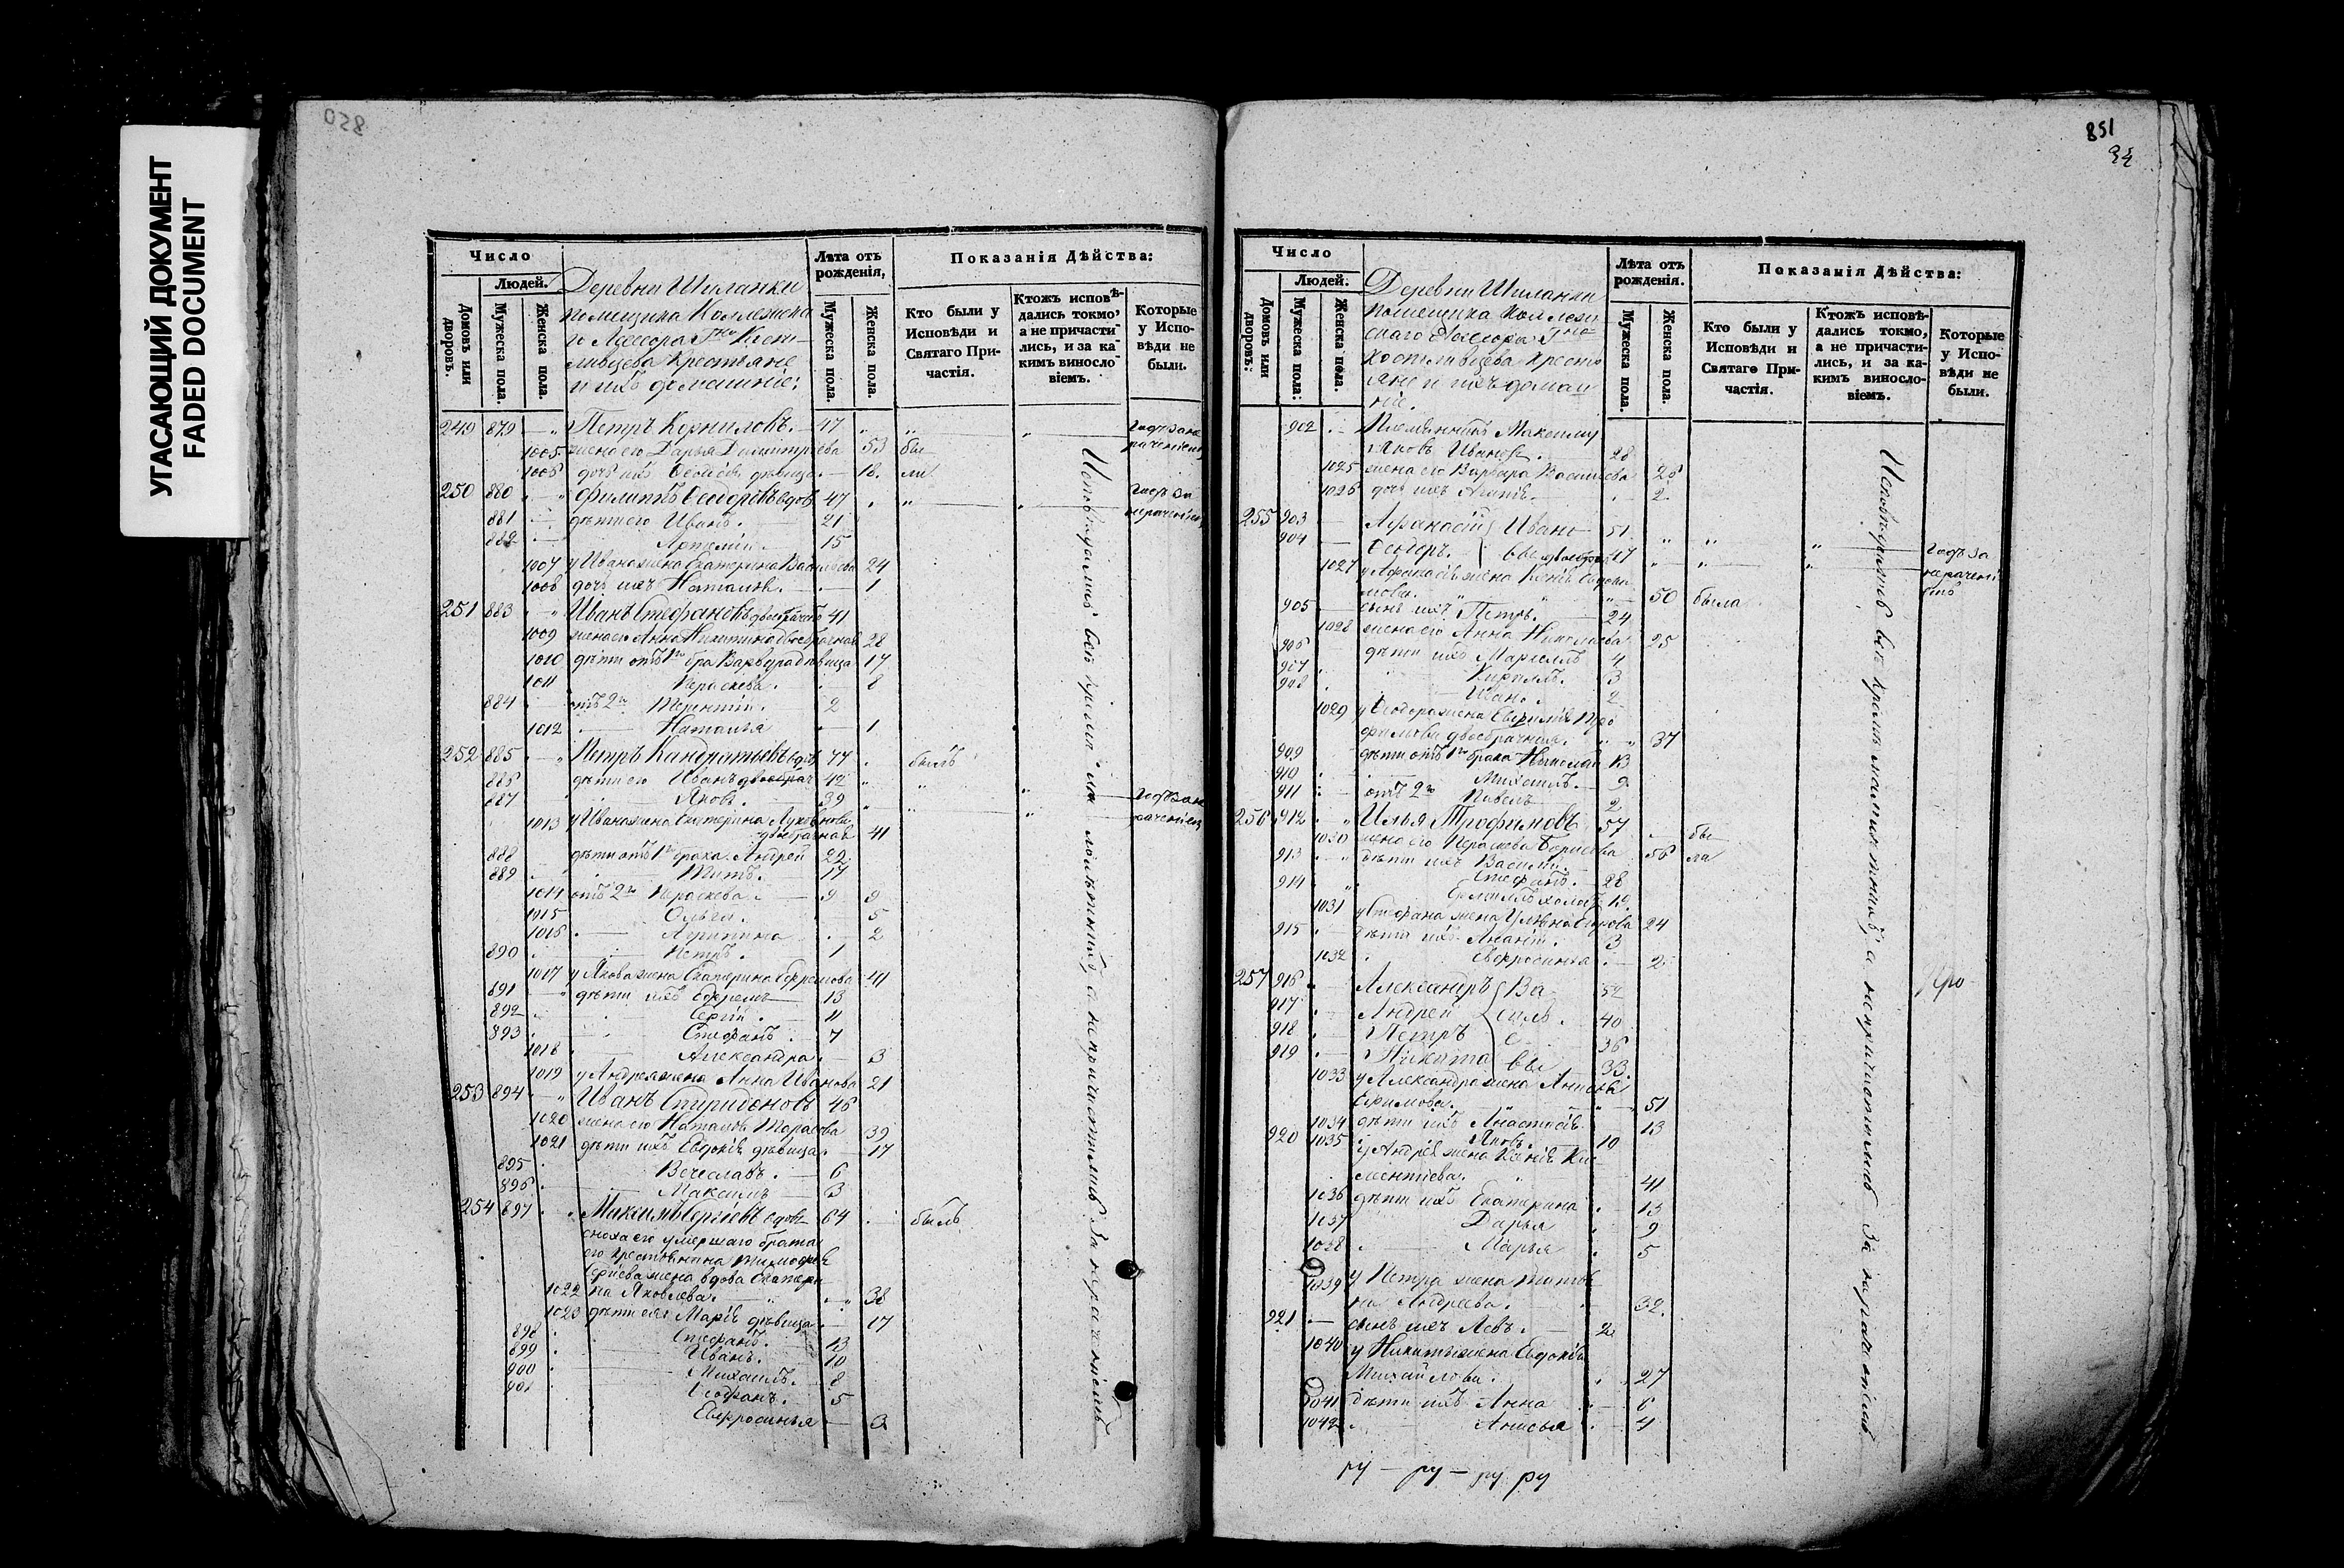 УГАСАЮЩИЙ ДОКУМЕНТ
FADED DOCUMENT
850
Число
Людей.
Домовъ или дворовъ.
Мужеска пола.
Женска пола.
Деревни Шиланки
помещика Коллежска
го Асессора Гна Кост-
ливцева крестьяне
и ихъ домашніе:
Лѣта отъ рожденія,
Мужеска пола.
Женска пола.
Показанія Дѣйства:
Кто были у Исповѣди и Святаго Причастія.
Ктожъ исповѣдались токмо, а не причастились, и за какимъ винословіемъ.
Которые у Исповѣди не были.
249 879 Петръ Корниловъ. 47
1005 жена его Дарья Димитріева 53 бы
1006 дочь ихъ девица 18. ли
250 880 Филиппъ Феодоровъ вдовъ 47
881 дети его Иванъ. 21
882 Артемій. 15
1007 у Ивана жена Екатерина Васильева 24
1008 дочь ихъ Наталья. 1
251 883 Иванъ Стефановъ двоебрачный 41
1009 жена его Анна Никитина двоебрачная 28
1010 дети отъ 1го бра Варвара девица 17
1011 Параскева. 8
884 отъ 2го Терентій. 2
1012 Наталья 1
252 885 Петръ Кандратьевъ вдовъ 77 былъ
886 дети его Иванъ двоебрач 42
887 Яковъ. 39
1013 у Ивана жена Екатерина
двоебрачная 41
888 дети отъ 1го брака Андрей 22
889 Титъ. 17
1014 отъ 2го Параскева. 9
1015 Ольга. 5
1016 Агрипина 2
890 Петръ. 1
1017 у Якова жена Екатерина Ефремова 41
891 дети ихъ Ефремъ 13
892 Сергій. 11
893 Стефанъ. 7
1018 Александра. 3
1019 у Андрея жена Анна Иванова 21
253 894 Иванъ Спиридоновъ 46
1020 жена его Наталья Тарасова 39
1021 дети ихъ Евдокія девица. 17
895 Вечеславъ. 6
896 Максимъ 3
254 897 Максимъ Сергіевъ вдовъ 64 былъ
сноха его умершаго брата
его крестьянина Тимофея
Сергіева жена вдова Екатери
1022 на Яковлева. 38
1023 дети ея Марія девица. 17
898 Стефанъ. 13
899 Иванъ. 10
900 Михаилъ. 8
901 Феофанъ. 5
Евфросинья 3
Исповедались все кроме а не причастились за нераченіемъ
851
34
Число
Людей.
Домовъ или дворовъ:
Мужеска пола:
Женска пола.
Деревни Шиланки
помещика Коллеж
скаго Асессора Гна
Костливцева кресть
яне и ихъ домаш
ніе.
Лѣта отъ рожденія.
Мужеска пола.
Женска пола.
Показанія Дѣйства:
Кто были у Исповѣди и Святаго Причастія.
Ктожъ исповѣдались токмо, а не причастились, и за какимъ винословіемъ.
Которые у Исповѣди не были.
902 Племянникъ Максиму
Яковъ Ивановъ. 28
1025 жена его Варвара Васильева 26
1026 дочь ихъ 2
255 903 Афанасій Ивано 51
904 Феодоръ. вы двоебрач 47
1027 у Афанасія жена Ксенія
50 была
905 сынъ ихъ Петръ. 24
1028 жена его Анна Николаева 25
906 дети ихъ 4
907 Кирилъ. 3
908 Иванъ. 2
1029 у Феодора жена Евфимія
двоебрачная. 37
909 дети отъ 1го брака Николай 13
910 Михаилъ. 9
911 отъ 2го Павелъ 2
256 912 Илья Трофимовъ 57 бы
1030 жена его Параскева Борисова 56 ли
913 дети ихъ Василій.
Стефанъ. 28
914 холостъ 19.
1031 у Стефана жена 24
915 дети ихъ 3
1032 Евфросинья 2
257 916 Александръ Ва 52
917 Андрей силь 40
918 Петръ е 36
919 Никита вы 33.
1033 у Александра жена
Ефимова. 51
1034 дети ихъ Анастасія 13
920 1035 Яковъ. 10
у Андрея жена Ксенія Кли
ментіева. 41
1036 дети ихъ Екатерина 13
1037 Дарья 9
1038 Марья 5
1039 у Петра жена Татья
на Андреева. 32.
921 сынъ ихъ Левъ. 2
1040 у Никиты жена Евдокія
Михайлова. 27
1041 дети ихъ Анна 6
1042 Анисья 4
Исповедались все кроме а не причастились за нераченіемъ
ру — ру — ру ру